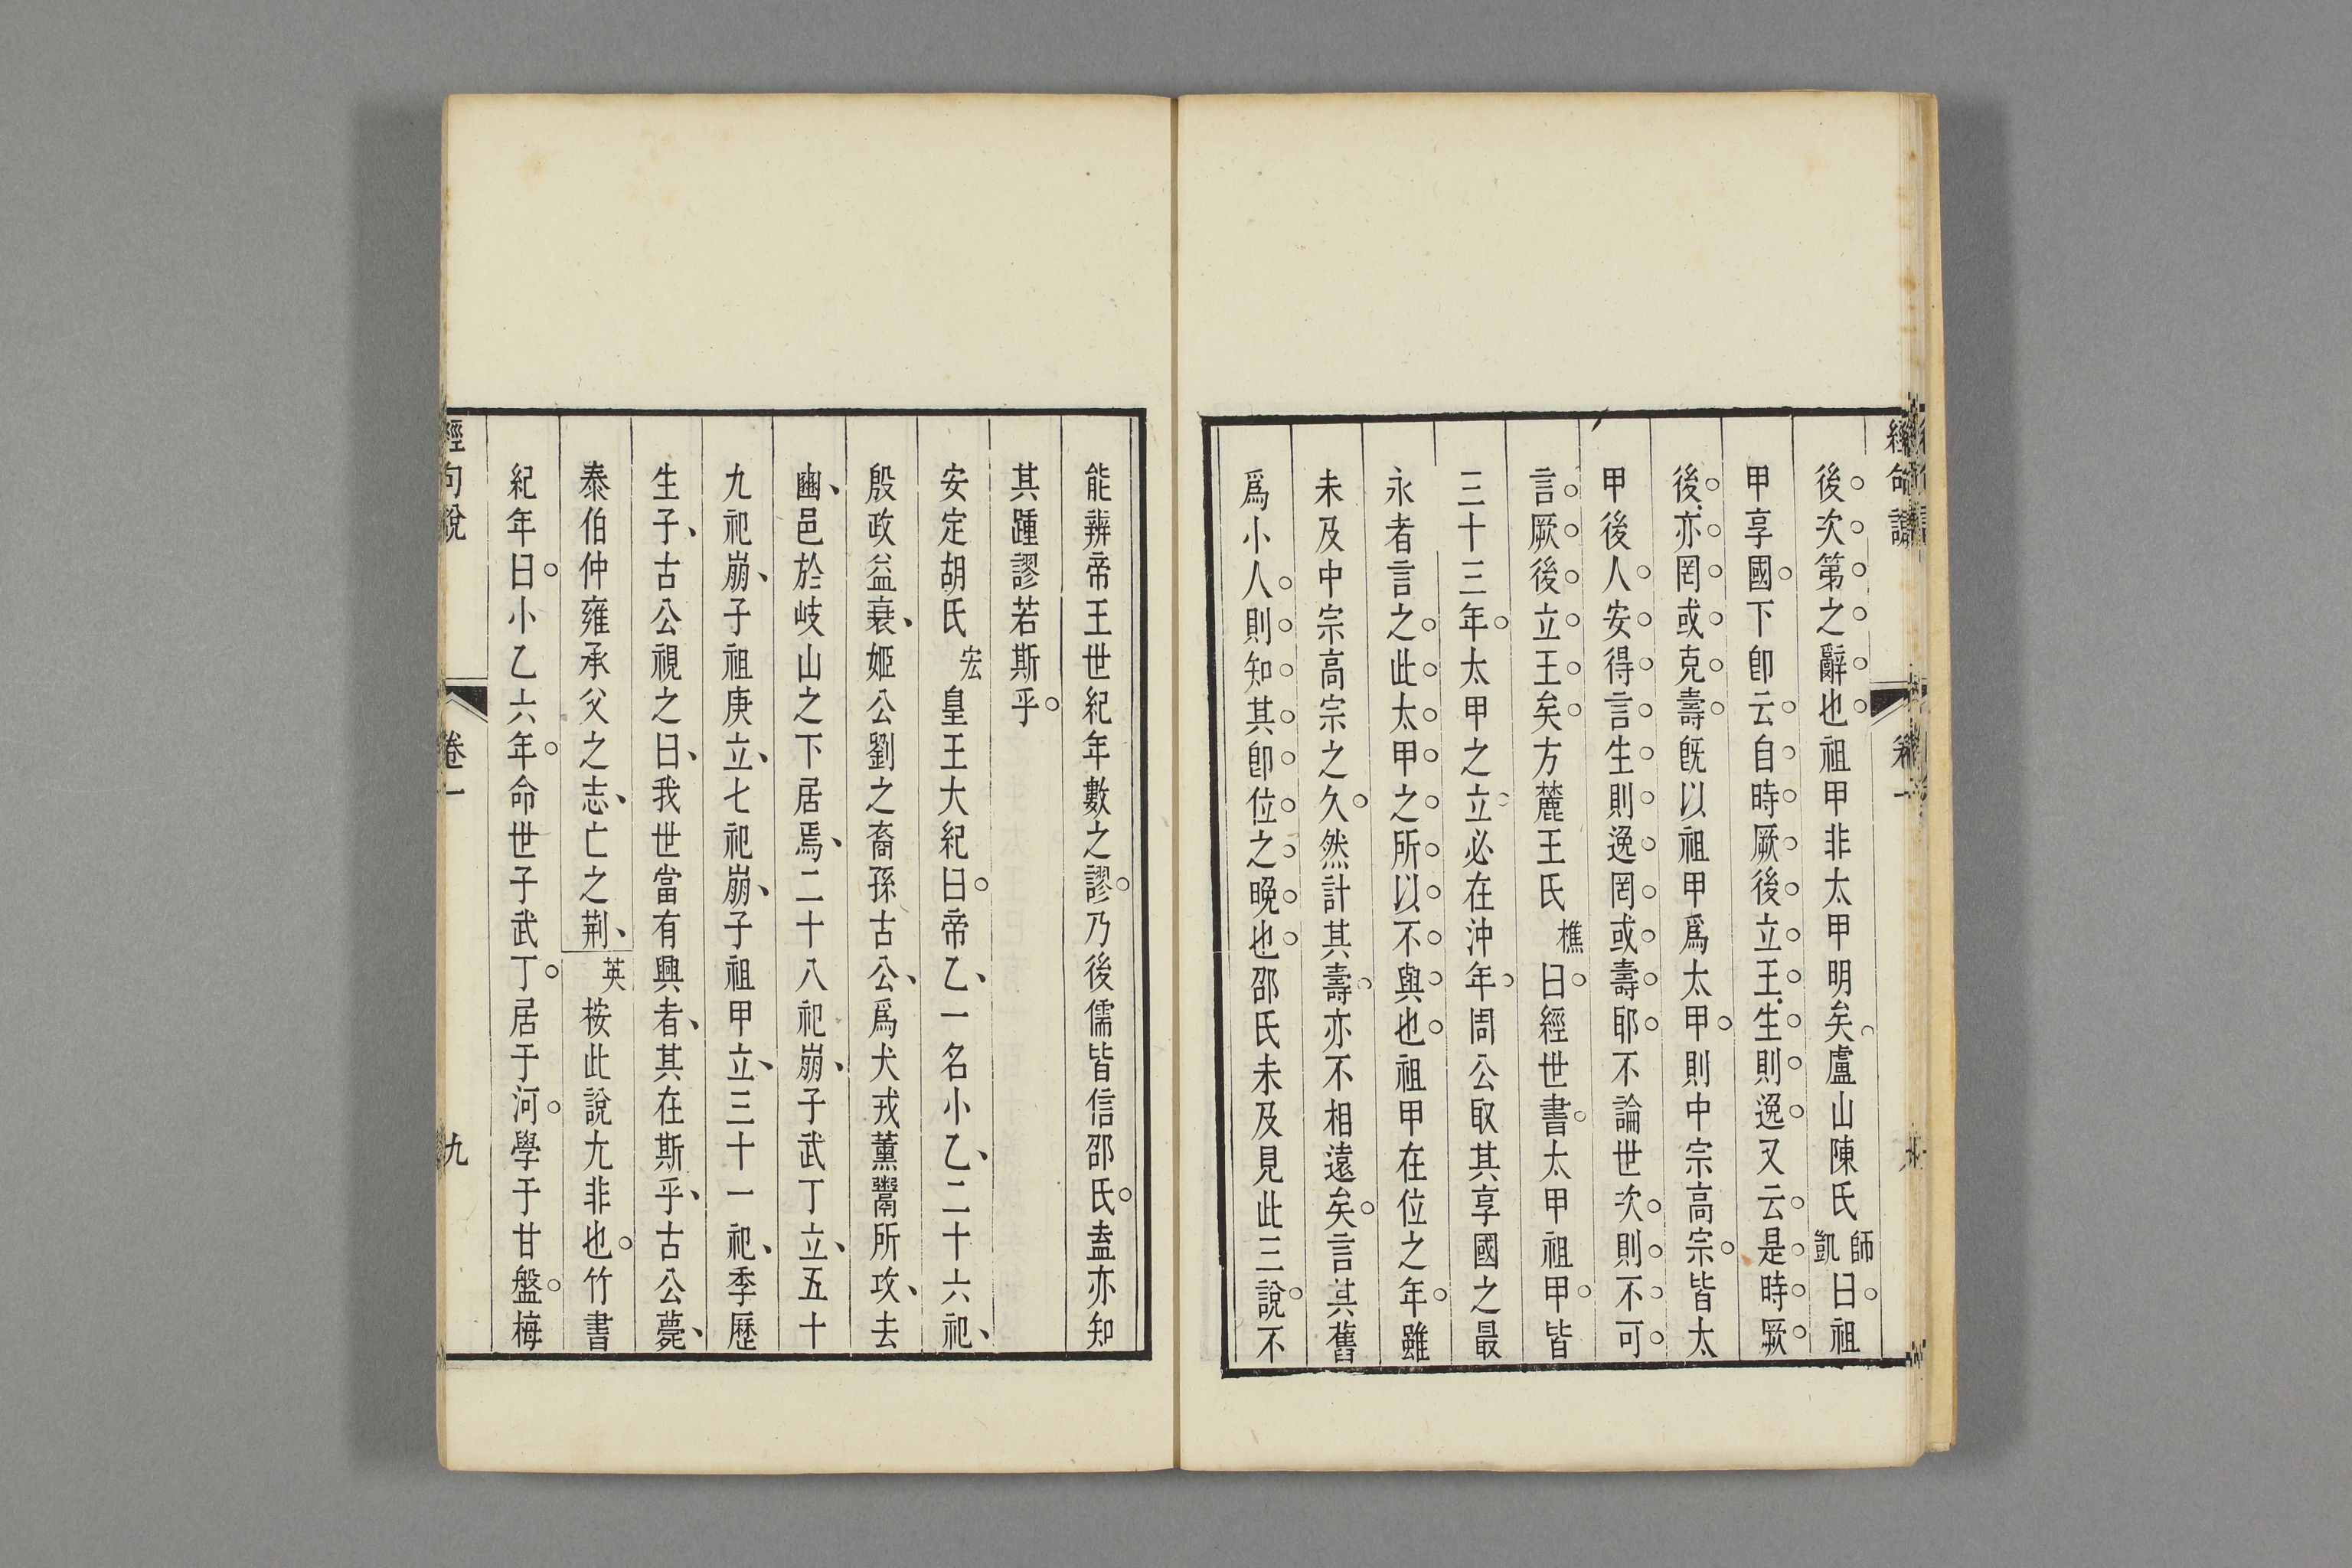 後次第之辭也祖甲非太甲明矣盧山陳氏師凱曰祖
甲享國下卽云自時厥後立王生則逸又云是時厥
後亦罔或克壽旣以祖甲爲太甲則中宗高宗皆太
甲後人安得言生則逸罔或壽耶不論世次則不可
言厥後立王矣方麓王氏樵曰經世書太甲祖甲皆
三十三年太甲之立必在沖年周公取其享國之最
永者言之此太甲之所以不與也祖甲在位之年雖
未及中宗高宗之久然計其壽亦不相遠矣言其舊
爲小人則知其卽位之晚也邵氏未及見此三說不
能辨帝王世紀年數之謬乃後儒皆信邵氏盍亦知
其踵謬若斯乎
安定胡氏宏皇王大紀曰帝乙一名小乙二十六祀
殷政益衰姬公劉之裔孫古公爲犬戎薰鬻所攻去
豳邑於岐山之下居焉二十八祀崩子武丁立五十
九祀崩子祖庚立七祀崩子祖甲立三十一祀季歷
生子古公視之曰我世當有興者其在斯乎古公薨
泰伯仲雍承父之志亡之荆英桉此說尢非也竹書
紀年曰小乙六年命世子武丁居于河學于甘盤梅
經句說 卷一 九